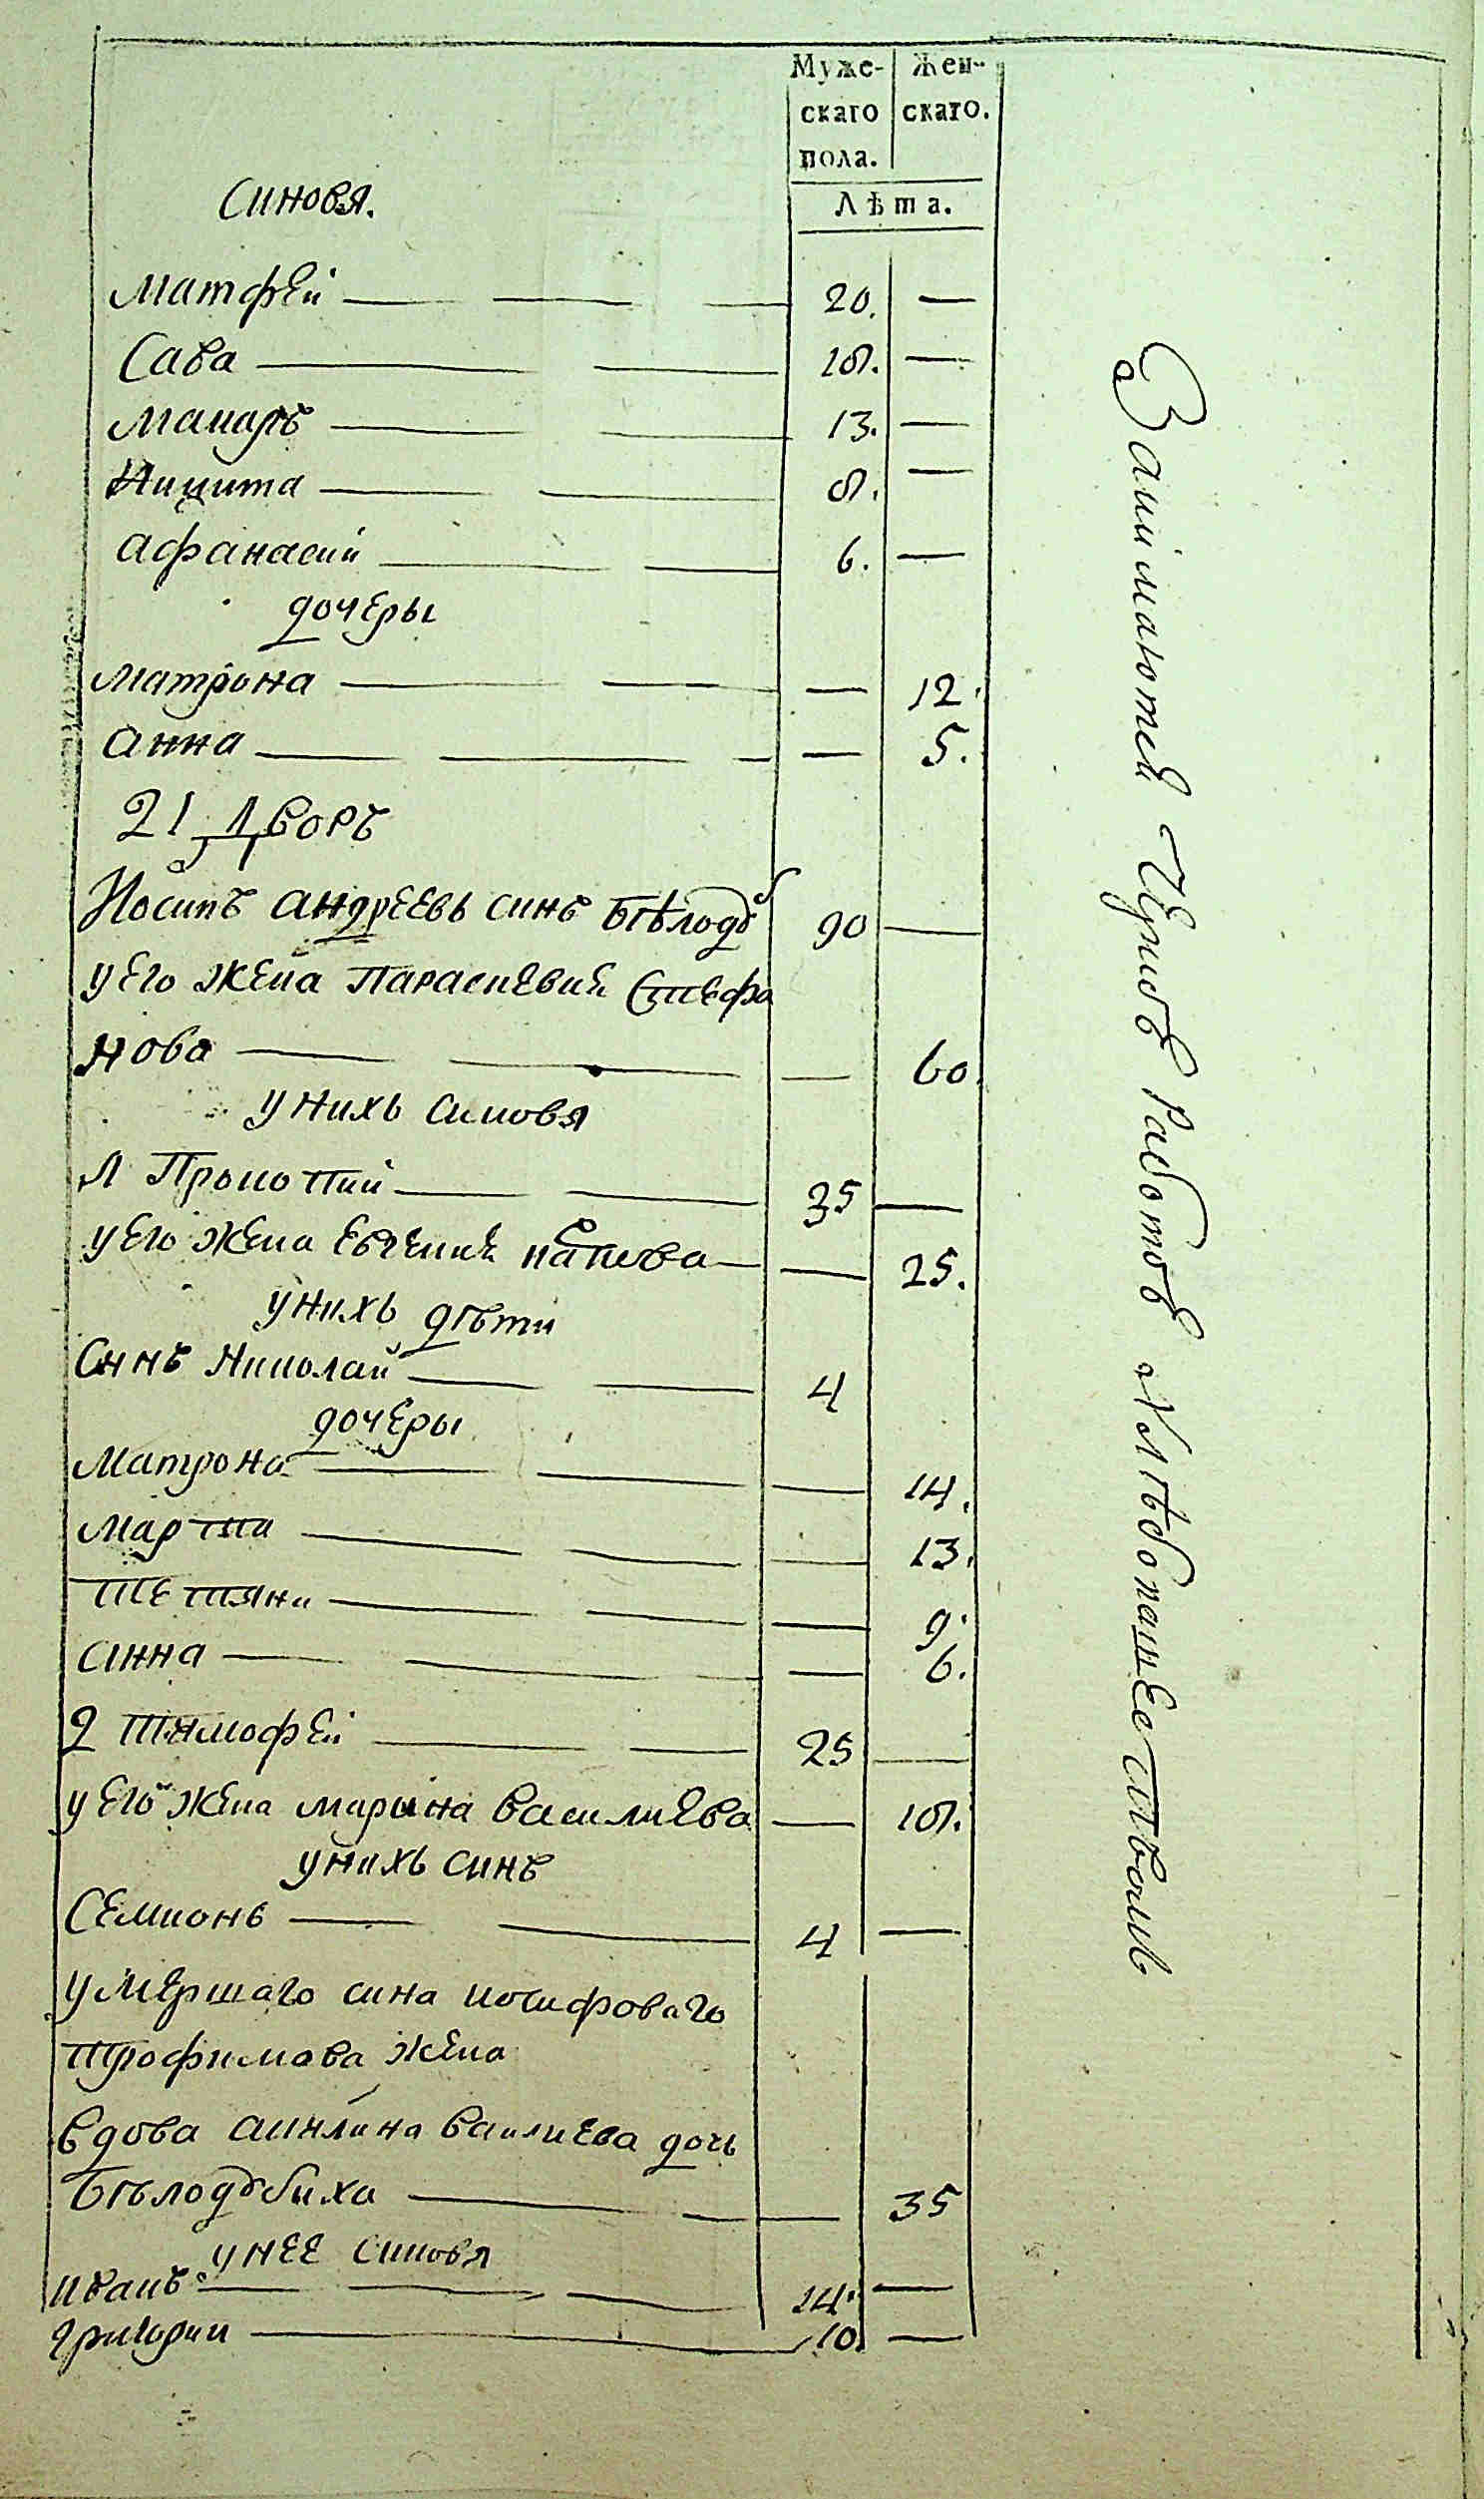 Муже- Жен-
скаго скаго.
пола.
Лѣта.
Синовя.
Матфей 20. —
Сава 18. —
Макаръ 13. —
Никита 8. —
Афанасий 6. —
дочеры
Матрона — 12.
Анна — 5.
21 Дворъ
Иосипъ Андреевъ синъ Бѣлодѣ 90 —
у его жена Параскевия Стефа
нова — 60.
у нихъ синовя
1 Прокопий 35 —
у его жена Евгения — 25.
у нихъ дѣти
Синъ Николай 4
дочеры
Матрона — 14.
Марта — 13.
Тетяна — 9.
Анна — 6.
2 Тимофей 25 —
у его жена Марына Василиева — 18.
у нихъ синъ
Семионъ 4 —
умершаго сина иосифоваго
трофимова жена
вдова Акилина Василиева дочь
Бѣлодѣбиха — 35
у нее синовя
Иванъ 14. —
Григорий 10. —
Займаются Черною Работою Хлѣбопашествомъ